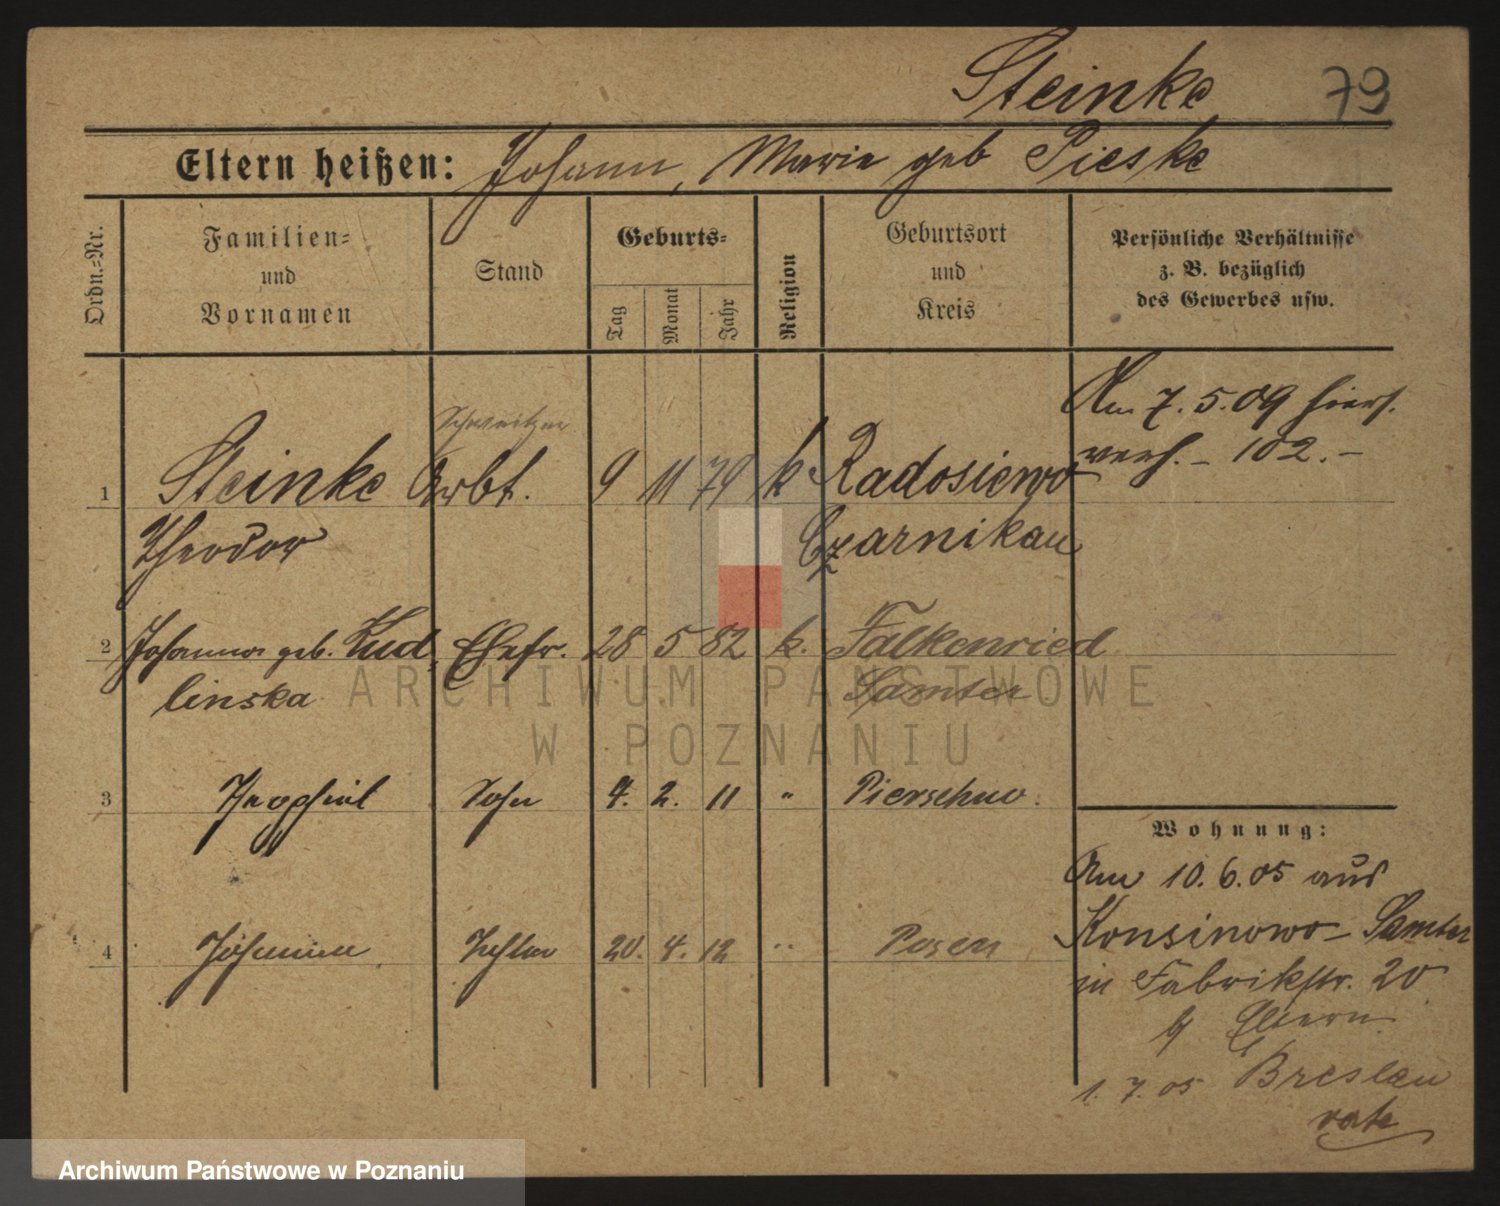 Steinke 79
Eltern heißen: Johann, Marie geb Pieske
Ordn.-Nr.
Familien-
und
Vornamen
Stand
Geburts-
Tag
Monat
Jahr
Religion
Geburtsort
und
Kreis
Persönliche Verhältnisse
z. B. bezüglich
des Gewerbes usw.
Schweitzer
1 Steinke Arbt. 9 11 79 k Radosiewo
Theodor Czarnikau
Am 7. 5. 09 hiers.
verh. – 102. –
2 Johanna geb. Kud Ehefr. 28 5 82 k. Falkenried
linska Samter
3 Theophiel Sohn 4. 2. 11 " Pierschno.
4 Johanna Tochter 20. 4. 12 " Posen
Wohnung:
Am 10. 6. 05 aus
Konsinowo – Samter
in Fabrikstr. 20
b/ Eltern.
1. 7. 05 Breslau
ARCHIWUM PAŃSTWOWE
W POZNANIU
Archiwum Państwowe w Poznaniu